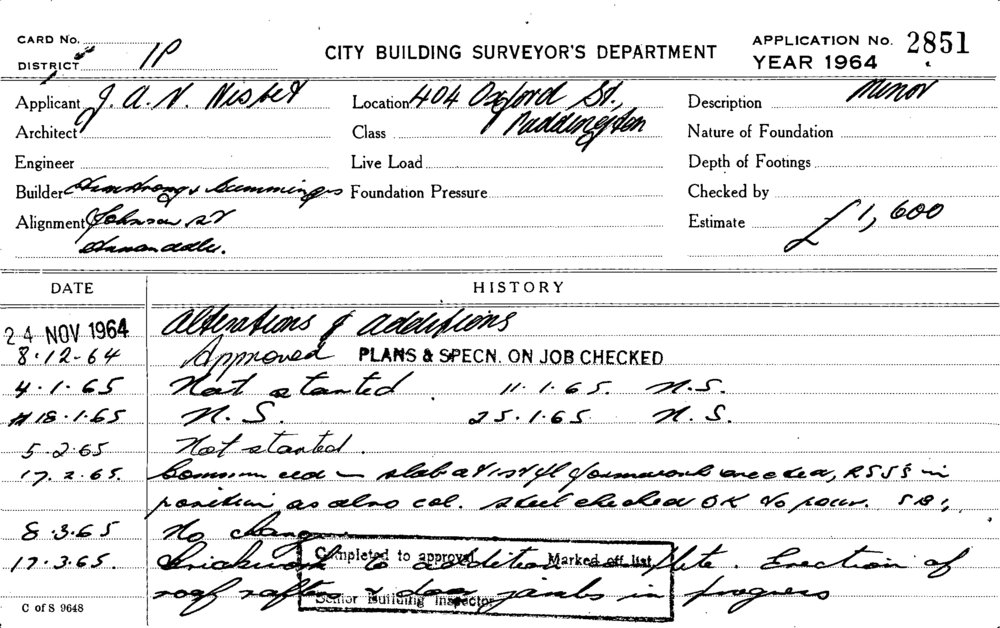 CARD No.
DISTRICT 1P
CITY BUILDING SURVEYOR'S DEPARTMENT
APPLICATION No. 2851
YEAR 1964
Applicant J. A. N. Nisbet
Location 404 Oxford St., Paddington
Description Minor
Architect
Class
Nature of Foundation
Engineer
Live Load
Depth of Footings
Builder Armstrong & Cummings
Foundation Pressure
Checked by
Alignment Johnson St
Annandale.
Estimate £1,600
DATE HISTORY
24 NOV 1964 Alterations & additions
8·12·64 Approved PLANS & SPECN. ON JOB CHECKED
4·1·65 Not started 11·1·65. N.S.
18·1·65 N.S. 25·1·65 N.S.
5·2·65 Not started.
17·2·65. Commenced – slab at 1st fl formwork erected, RSJS in
position, as also col. steel checked OK to pour.
8·3·65 No change.
17·3·65. Brickwork to addition complete. Erection of
roof rafters & door jambs in progress
Completed to approval Marked off list
Senior Building Inspector
C of S 9648